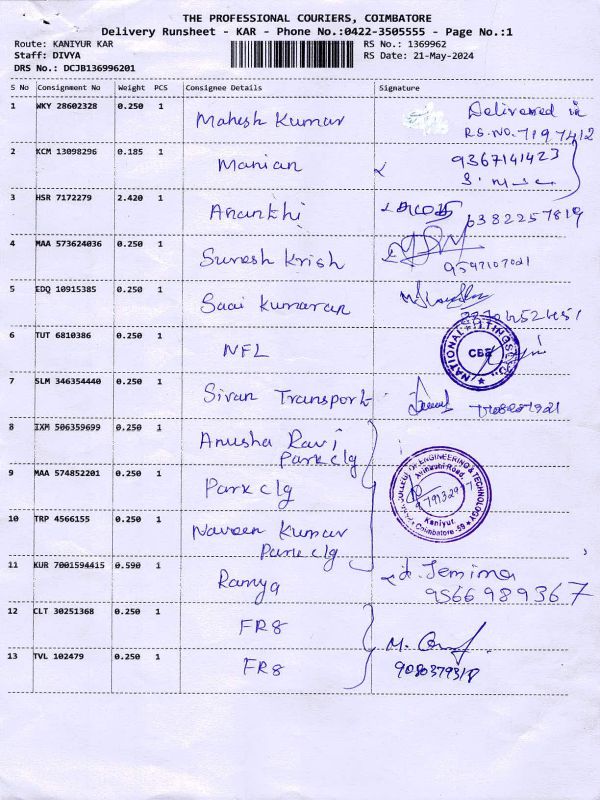 THE PROFESSIONAL COURIERS, COIMBATORE
Delivery Runsheet - KAR - Phone No.:0422-3505555 - Page No.:1
Route: KANIYUR KAR
RS No.: 1369962
Staff: DIVYA
RS Date: 21-May-2024
DRS No.: DCJB136996201
S No Consignment No Weight PCS Consignee Details Signature
1 WKY 28602328 0.250 1 Mahesh Kumar Delivered in
RS.NO. 7197412
2 KCM 13098296 0.185 1 Manian 9367141423
3 HSR 7172279 2.420 1 Ananthi 6382257819
4 MAA 573624036 0.250 1 Suresh Krish
9597107021
5 EDQ 10915385 0.250 1 Saai Kumaran
6 TUT 6810386 0.250 1 NFL
NATIONAL CBE
7 SLM 346354440 0.250 1 Sivan Transport
8 IXM 506359699 0.250 1 Anusha Ravi
Park clg
9 MAA 574852201 0.250 1 Park clg
COLLEGE OF ENGINEERING & TECHNOLOGY
Avinashi Road,
Kaniyur,
Coimbatore -59
10 TRP 4566155 0.250 1 Naveen Kumar
Park clg
11 KUR 7001594415 0.590 1 Ramya Jemima
9566989367
12 CLT 30251368 0.250 1 FR8
13 TVL 102479 0.250 1 FR8